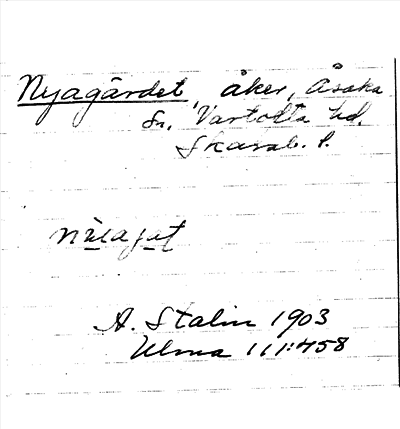 Nyagärdet, åker, Åsaka
Sn, Vartofta hd.
Skarab. l.
A. Stalin 1903
Ulma 111:458